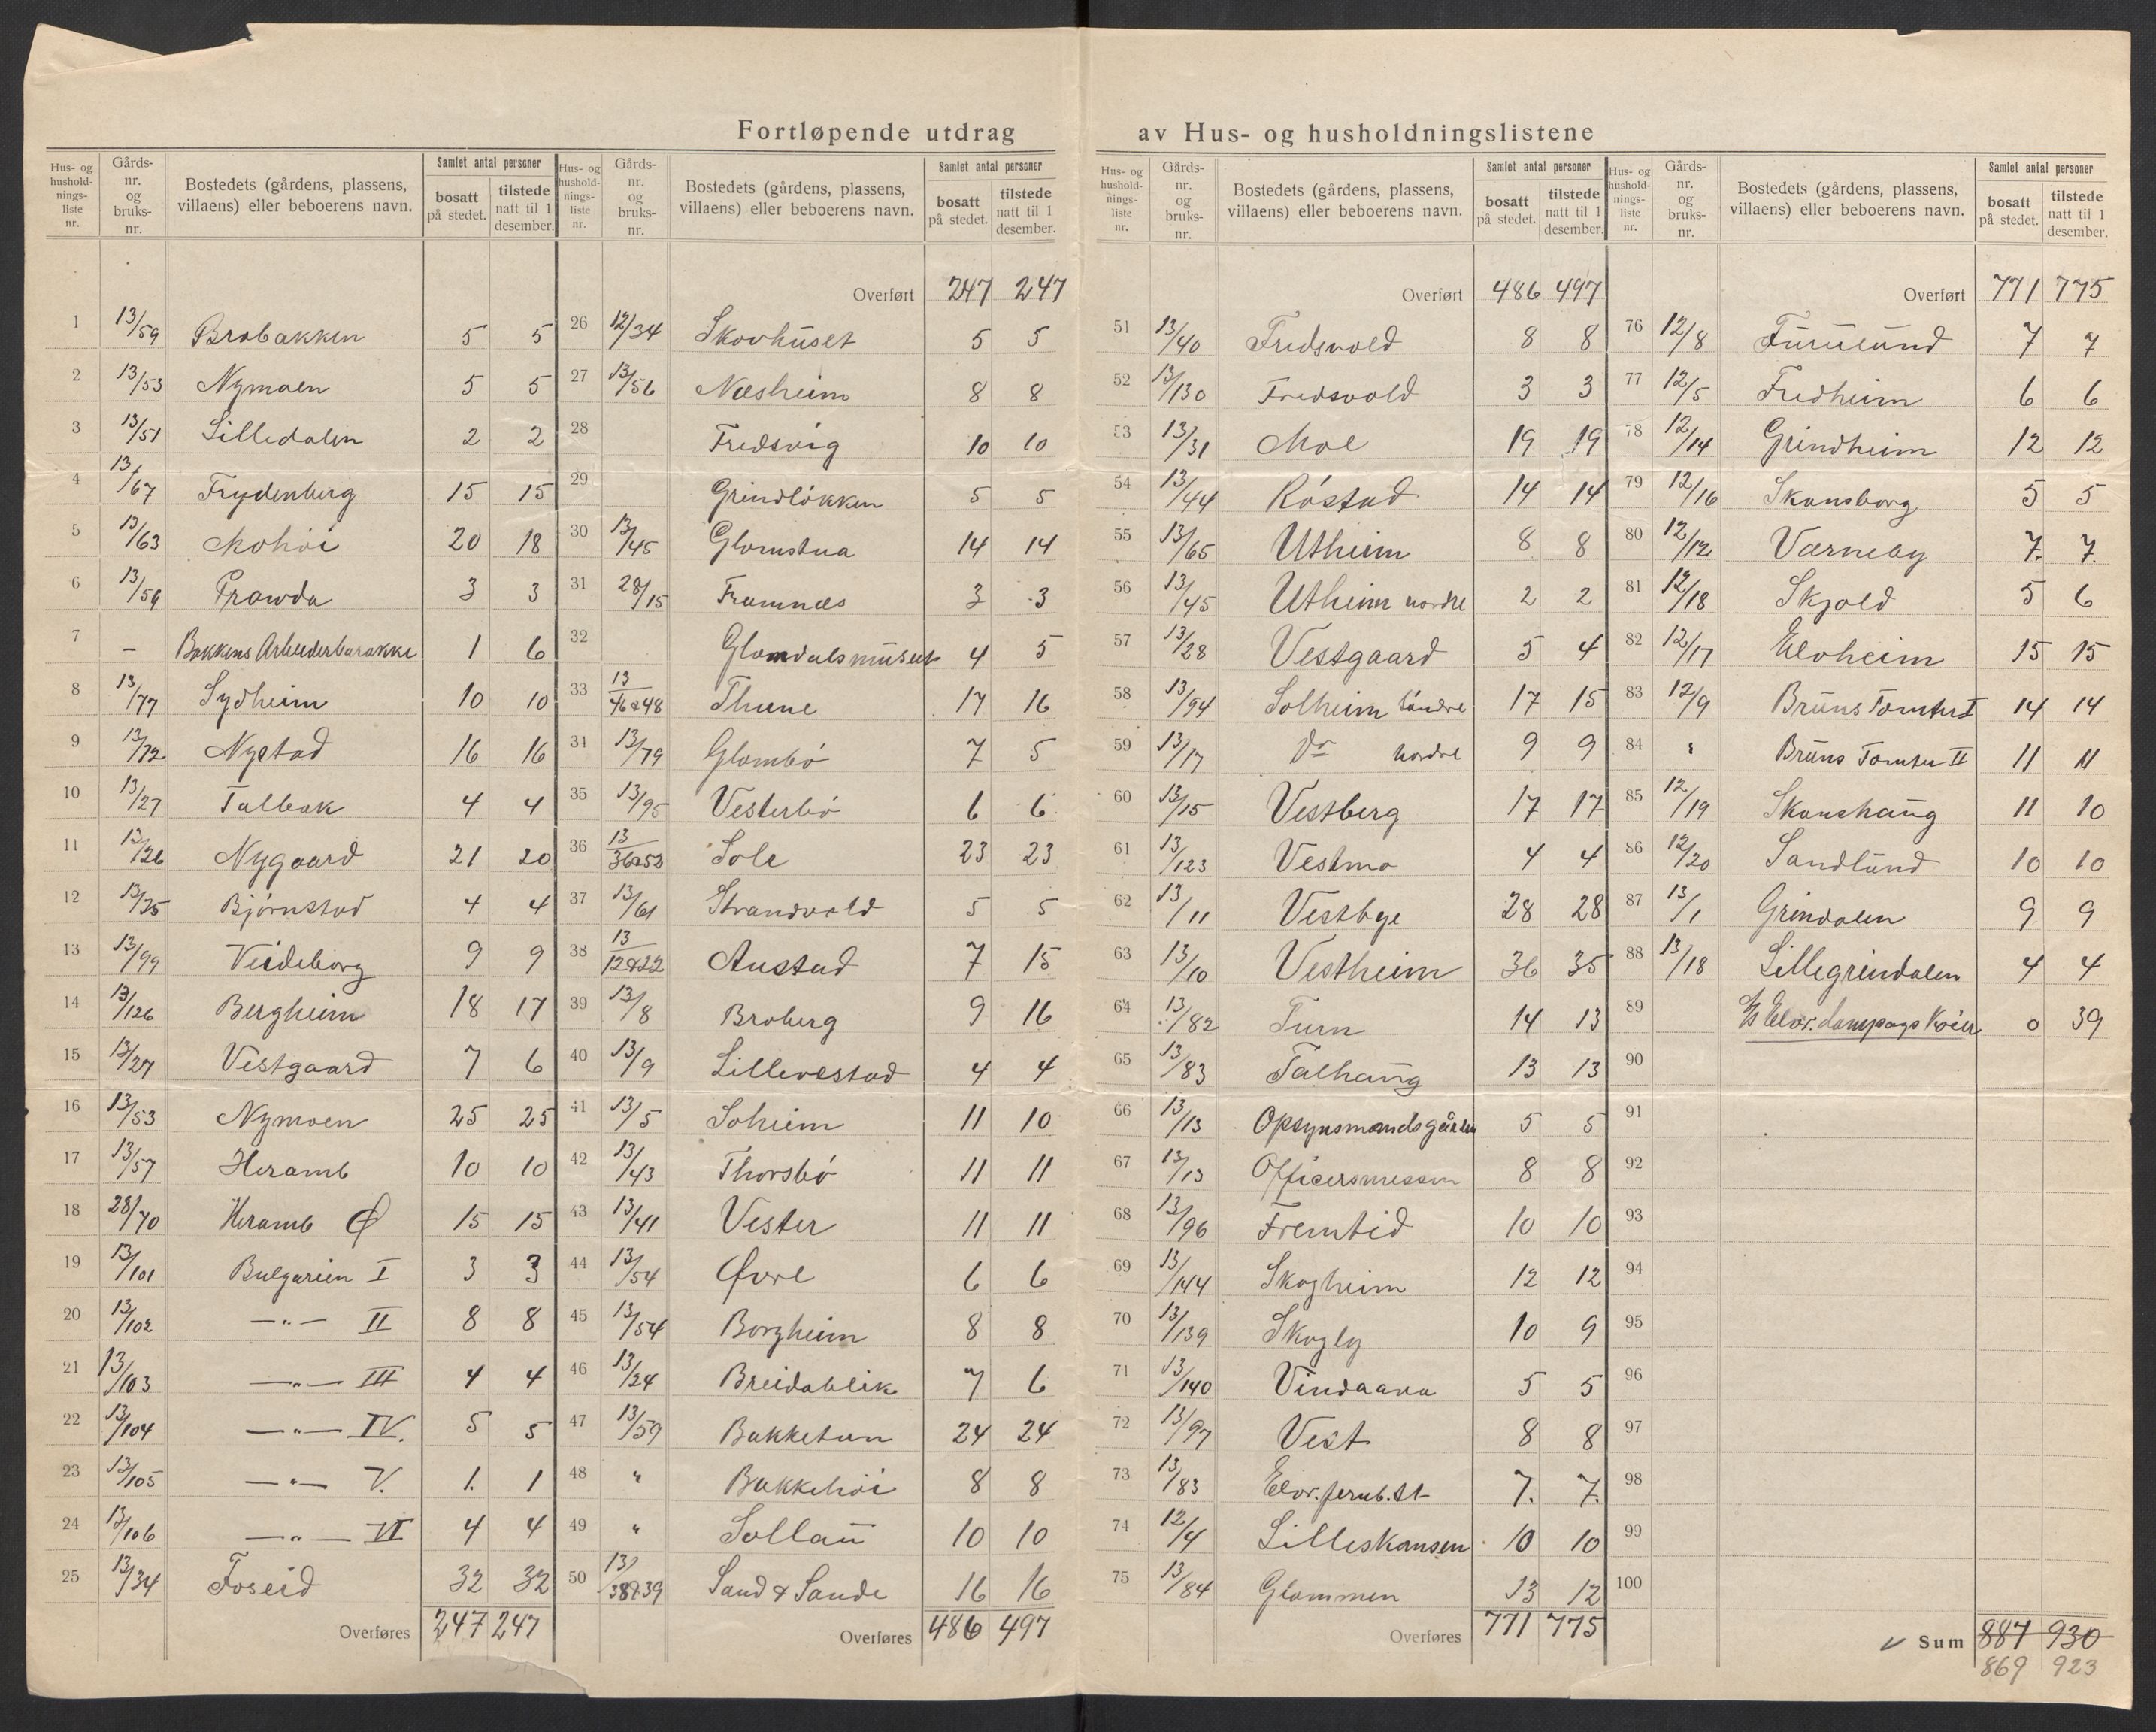 Fortløpende utdrag av Hus- og husholdningslistene
Hus- og husholdnings-liste nr. | Gårds-nr. og bruks-nr. | Bostedets (gårdens, plassens, villaens) eller beboerens navn. | Samlet antal personer | bosatt på stedet. | tilstede natt til 1 desember.
1 13/59 Brobakken 5 5
2 13/53 Nymoen 5 5
3 13/51 Lilledalen 2 2
4 13/67 Frydenberg 15 15
5 13/63 Mohöi 20 18
6 13/59 Prawda 3 3
7 – Bakkens Arbeiderbarakke 1 6
8 13/77 Sydheim 10 10
9 13/72 Nystad 16 16
10 13/27 Talbak 4 4
11 12/26 Nygaard 21 20
12 13/25 Bjørnstad 4 4
13 13/99 Veideborg 9 9
14 13/126 Bergheim 18 17
15 13/27 Vestgaard 7 6
16 13/53 Nymoen 25 25
17 13/57 Heramb 10 10
18 28/70 Heramb Ø 15 15
19 13/101 Bulgarien I 3 3
20 13/102 —"— II 8 8
21 13/103 —"— III 4 4
22 13/104 —"— IV. 5 5
23 13/105 —"— V. 1. 1
24 13/106 —"— VI 4 4
25 13/34 Foseid 32 32
Overføres 247 247
Hus- og husholdnings-liste nr. | Gårds-nr. og bruks-nr. | Bostedets (gårdens, plassens, villaens) eller beboerens navn. | Samlet antal personer | bosatt på stedet. | tilstede natt til 1 desember.
Overført 247 247
26 12/34 Skovhuset 5 5
27 13/56 Næsheim 8 8
28 Fredsvig 10 10
29 Grindløkken 5 5
30 13/45 Glomstua 14 14
31 28/15 Framnæs 3 3
32 Glomdalsmuseet 4 5
33 13/46&48 Thune 17 16
34 13/79 Glombö 7 5
35 13/95 Vesterbö 6 6
36 13/36&52 Sole 23 23
37 13/61 Strandvold 5 5
38 13/12&22 Austad 7 15
39 13/8 Broberg 9 16
40 13/9 Lillevestad 4 4
41 13/5 Soheim 11 10
42 13/43 Thorsbö 11 11
43 13/41 Vester 11 11
44 13/54 Øvre 6 6
45 13/54 Borgheim 8 8
46 13/24 Breidablik 7 6
47 13/59 Bakketun 24 24
48 " Bakkehöi 8 8
49 " Sollau 10 10
50 13/38&39 Sand & Sande 16 16
Overføres 486 497
Hus- og husholdnings-liste nr. | Gårds-nr. og bruks-nr. | Bostedets (gårdens, plassens, villaens) eller beboerens navn. | Samlet antal personer | bosatt på stedet. | tilstede natt til 1 desember.
Overført 486 497
51 13/40 Fredsvold 8 8
52 13/130 Fredsvold 3 3
53 13/31 Moe 19 19
54 13/44 Röstad 14 14
55 13/65 Utheim 8 8
56 13/45 Utheim nordre 2 2
57 13/28 Vestgaard 5 4
58 13/94 Solheim söndre 17 15
59 13/17 Do nordre 9 9
60 13/15 Vestberg 17 17
61 13/123 Vestmo 4 4
62 13/11 Vestbye 28 28
63 13/10 Vestheim 36 35
64 13/82 Turn 14 13
65 13/83 Talhaug 13 13
66 13/13 Opsynsmandsgården 5 5
67 13/13 Officersmessen 8 8
68 13/96 Fremtid 10 10
69 13/144 Skogheim 12 12
70 13/139 Skogly 10 9
71 13/140 Vindaara 5 5
72 13/97 Vest 8 8
73 13/83 Elvr. jernb. st 7. 7.
74 12/4 Lilleskansen 10 10
75 13/84 Glommen 13 12
Overføres 771 775
Hus- og husholdnings-liste nr. | Gårds-nr. og bruks-nr. | Bostedets (gårdens, plassens, villaens) eller beboerens navn. | Samlet antal personer | bosatt på stedet. | tilstede natt til 1 desember.
Overført 771 775
76 12/8 Furulund 7 7
77 12/5 Fredheim 6 6
78 12/14 Grindheim 12 12
79 12/16 Skansborg 5 5
80 12/12 Varneby 7. 7.
81 12/18 Skjold 5 6
82 12/17 Elvheim 15 15
83 12/9 Bruns Tomter I 14 14
84 " Bruns Tomter II 11 11
85 12/19 Skanshaug 11 10
86 12/20 Sandlund 10 10
87 13/1 Grindalen 9 9
88 13/18 Lillegrindalen 4 4
89 A/S Elvr. dampsags Koier 0 39
90
91
92
93
94
95
96
97
98
99
100
Sum 887 930
869 923